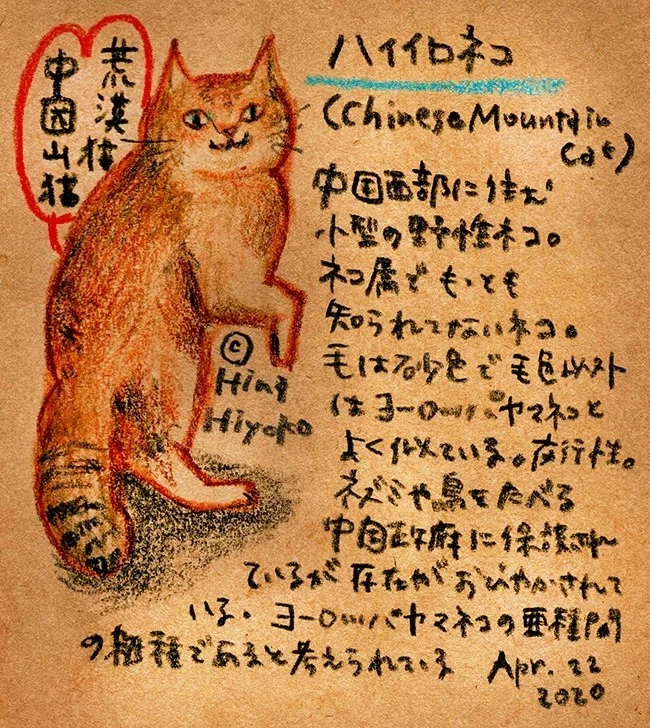 荒漠猫
中国山猫
ハイイロネコ
(Chinese Mountain
Cat)
中国西部に住む
小型の野性ネコ。
ネコ属でもっとも
知られてないネコ。
毛は砂色で毛色以外
はヨーロッパヤマネコと
よく似ている。夜行性。
ネズミや鳥をたべる
中国政府に保護され
ているが存在がおびやかされて
いる。ヨーロッパヤマネコの亜種
の種であると考えられている
Apr. 22
2020
©
Hiyoko